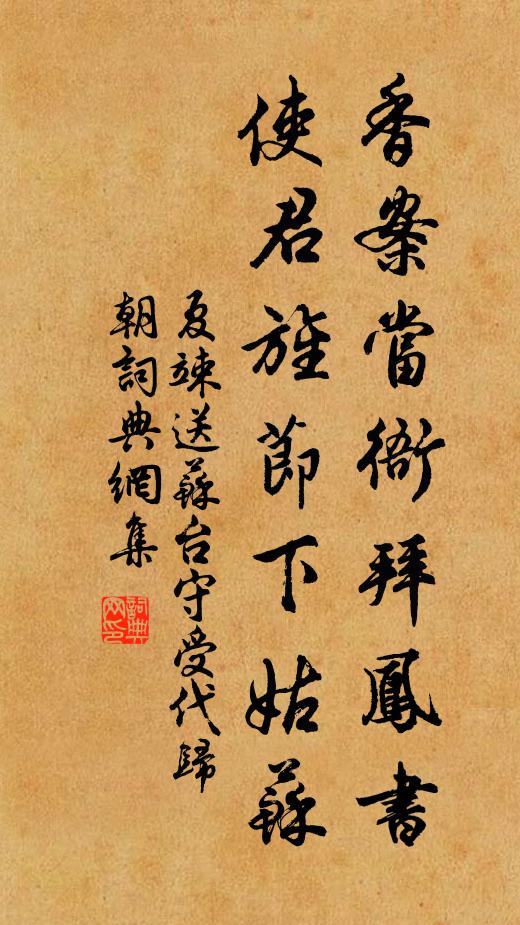 香案當衙拜鳳書
使君旌節下姑蘇
夏竦送蘇台守受代歸
朝詞典網集
詞典網印